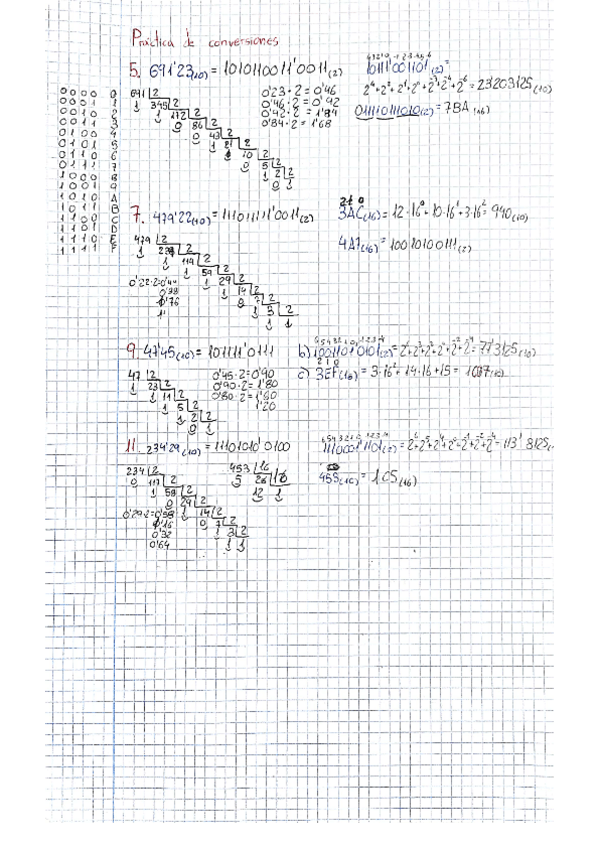 Práctica de conversiones
0000 0
0001 1
0010 2
0011 3
0100 4
0101 5
0110 6
0111 7
1000 8
1001 9
1010 A
1011 B
1100 C
1101 D
1110 E
1111 F
5. 691'23(10) = 1010110011'0011(2)
691 2
1 345 2
1 172 2
0 86 2
0 43 2
1 21 2
1 10 2
0 5 2
1 2 2
0 1
0'23·2 = 0'46
0'46·2 = 0'92
0'92·2 = 1'84
0'84·2 = 1'68
10111'001101(2) =
2⁴+2²+2¹+2⁰+2⁻³+2⁻⁴+2⁻⁶ = 23'203125(10)
011110111010(2) = 7BA(16)
7. 479'22(10) = 111011111'0011(2)
479 2
1 239 2
1 119 2
1 59 2
1 29 2
1 14 2
0 7 2
1 3 2
1 1
0'22·2=0'44
0'88
1'76
210
3AC(16) = 12·16⁰+10·16¹+3·16² = 940(10)
4A7(16) = 10010100111(2)
9. 47'45(10) = 101111'0111
47 2
1 23 2
1 11 2
1 5 2
1 2 2
0 1
0'45·2=0'90
0'90·2=1'80
0'80·2=1'60
1'20
b) 1001101'0101(2) = 2⁶+2³+2²+2⁰+2⁻²+2⁻⁴ = 77'3125(10)
210
c) 3EF(16) = 3·16²+14·16+15 = 1007(10)
11. 234'29(10) = 11101010'0100
234 2
0 117 2
1 58 2
0 29 2
1 14 2
0 7 2
1 3 2
1 1
0'29·2=0'58
1'16
0'32
0'64
453 16
5 28 16
12 1
1110001'1101(2) = 2⁶+2⁵+2⁴+2⁰+2⁻¹+2⁻²+2⁻⁴ = 113'8125
= 1C5(16)